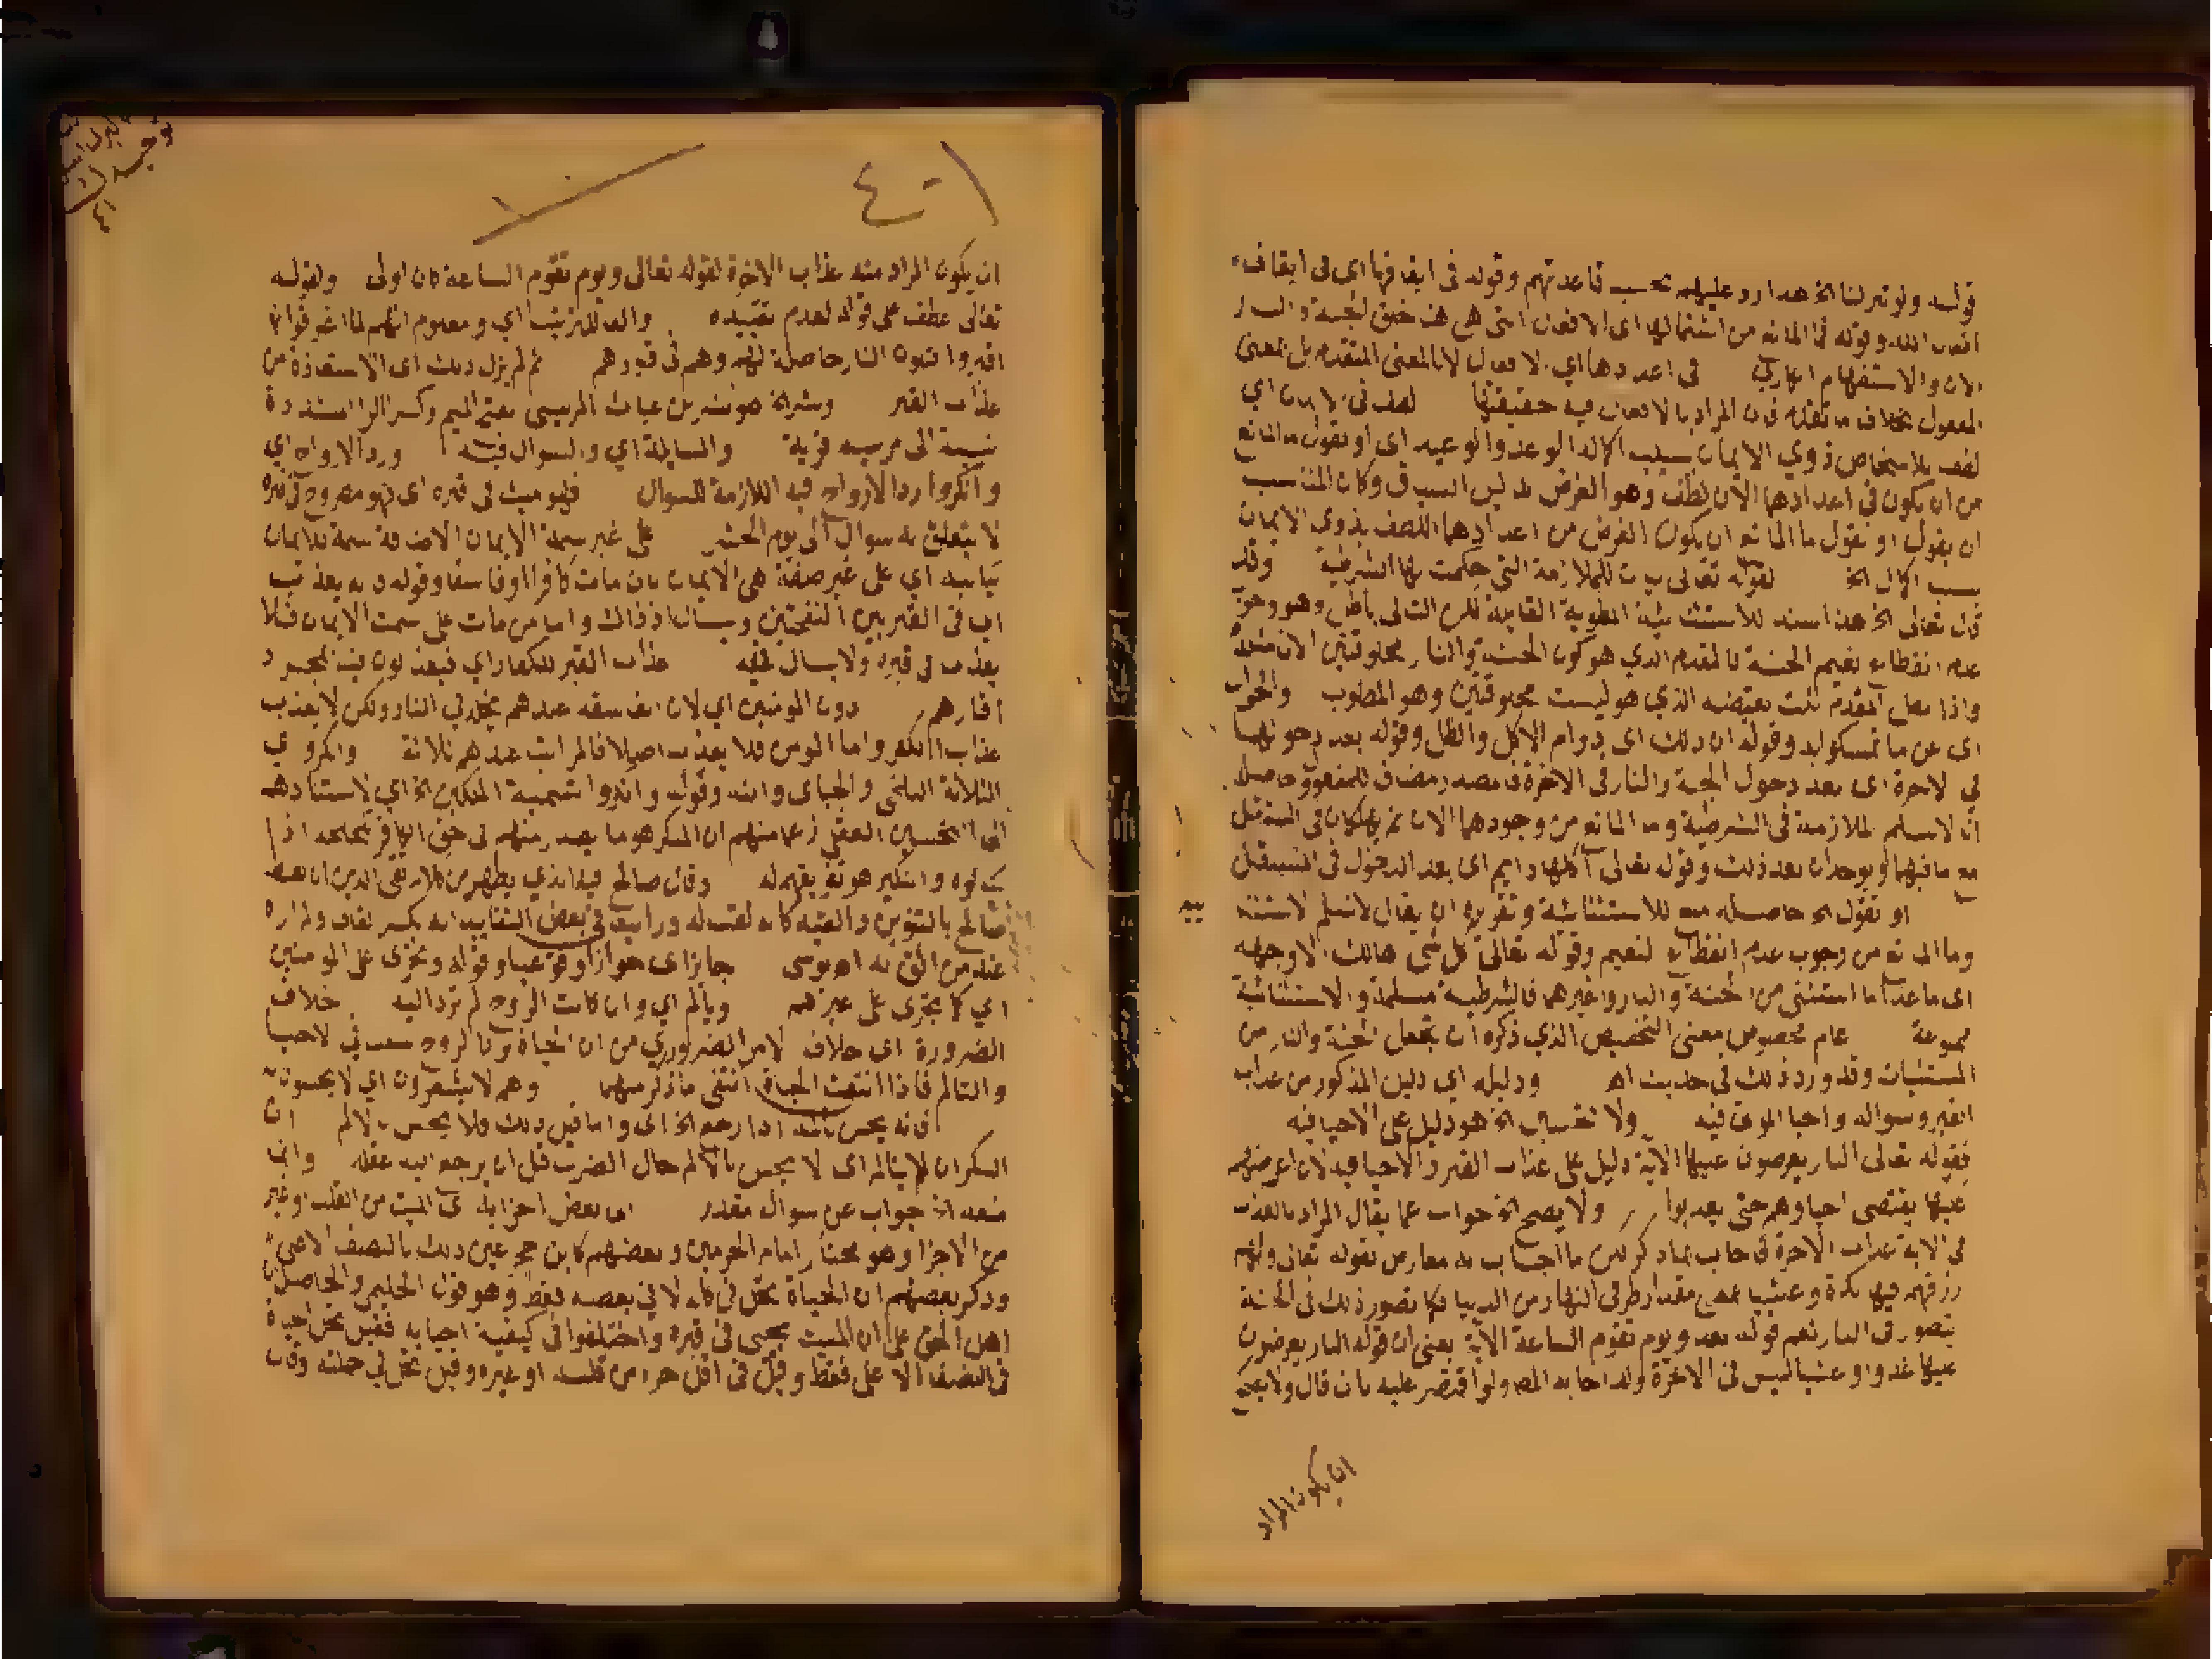 قوله ولو تنزلنا الخ هذا رد عليهم بحسب قاعدتهم وقوله في ايقافها اي في ايقاف
افعال الله وقوله فما المانع من اشتمالها اي الافعال التي هي هنا خلق الجنة والنار
الان والاستفهام انكاري في اعدادها اي لا فعال لا بالمعنى المتقدم بل بمعنى
المفعول بخلاف ما تقدم فان المراد بالافعال فيه حقيقتها لطف في الايمان اي
لطف بالاشخاص ذوي الايمان بسبب اكمال الوعد والوعيد اي او نقول ما المانع
من ان يكون في اعدادها الان لطف وهو الغرض بدليل السياق وكان المناسب
ان يقول او نقول ما المانع ان يكون الغرض من اعدادها اللطف بذوي الايمان
بسبب اكمال الخ لقوله تعالى بيان للملازمة التي حكمت بها الشرطية وقد
قال تعالى الخ هذا سند للاستثنائية المطوية القائلة لكن التالي باطل وهو وجوب
عدم انقطاع نعيم الجنة فالمقدم الذي هو كون الجنة والنار مخلوقتين الان مثله
واذا بطل المقدم ثبت نقيضه الذي هو ليست مخلوقتين وهو المطلوب والجواب
اي عن ما تمسكوا به وقوله ان ذلك اي دوام الاكل والظل وقوله بعد دخولها
في الاخرة اي بعد دخول الجنة والنار في الاخرة فالمصدر مضاف للمفعول وحاصله
انا لا نسلم الملازمة في الشرطية وما المانع من وجودهما الان ثم يهلكان في المستقبل
مع ما فيهما ويوجدان بعد ذلك وقوله تعالى اكلها دايم اي بعد الدخول في المستقبل
او نقول الخ حاصله منع للاستثنائية وتقريره ان يقال لا نسلم الاستثنا
وما المانع من وجوب عدم انقطاع النعيم وقوله تعالى كل شي هالك الا وجهه
اي ما عدا ما استثنى من الجنة والنار وغيرهما فالشرطية مسلمة والاستثنائية
ممنوعة عام مخصوص معنى التخصيص الذي ذكره ان تجعل الجنة والنار من
المستثنيات وقد ورد ذلك في حديث اه ودليله اي دليل المذكور من عذاب
القبر وسواله واحيا الموتى فيه ولا تحسبن الخ هو دليل على الاحيا فيه
فقوله تعالى النار يعرضون عليها الاية دليل على عذاب القبر والاحيا فيه لان عرضهم
عليها يقتضي احياوهم حتى يعذبوا ولا يصح الخ جواب عما يقال المراد بالعذاب
في الاية عذاب الاخرة فاجاب بما ذكر لكن ما اجاب به معارض بقوله تعالى ولهم
رزقهم فيها بكرة وعشيا بمعنى مقدار طرفي النهار من الدنيا فكما تصور ذلك في الجنة
يتصور في النار نعم قوله بعد ويوم تقوم الساعة الاية يعني ان قوله النار يعرضون
عليها غدوا وعشيا ليس في الاخرة ولذا اجابه المصـ ولو اقتصر عليه بان قال ولا يصح
ان يكون المراد
٤٠١
ان يكون المراد منه عذاب الاخرة لقوله تعالى ويوم تقوم الساعة كان اولى ولقوله
تعالى عطف على قوله لعدم تقييده والفا للترتيب اي ومعلوم انهم لما اغرقوا
ادخلوا فتكون النار حاصلة لهم وهم في قبورهم ثم لم يزل ذلك اي الاستعاذة من
عذاب القبر وبشر الخ هو بشر بن غياث المريسي بفتح الميم وكسر الرا المشددة
نسبة الى مريسه قرية والمسايلة اي والسوال فيه ورد الارواح اي
وانكروا رد الارواح فيه اللازمة للسوال فهو ميت في قبره اي فهو مطروح في قبره
لا يتعلق به سوال الى يوم الحشر على غير سمة الايمان الاضافة سمة للايمان
بيانيه اي على غير صفة هي الايمان بان مات كافرا او فاسقا وقوله فانه يعذب
اي في القبر بين النفختين ويسال اذ ذاك واما من مات على سمت الايمان فلا
يعذب في قبره ولا يسال فيه عذاب القبر للكفار اي فيعذبون فيه بمجرد
اقبارهم دون المومنين اي لان الفاسقه عندهم يخلد في النار ولكن لا يعذب
عذاب الكفر واما المومن فلا يعذب اصلا فالمراتب عندهم ثلاثة وانكروا اي
الثلاثة البلخي والجباي وابنه وقوله وانكروا تسمية الملكين الخ اي لاستنادهم
الى التحسين العقلي زعما منهم ان المنكر هو ما يصدر منهم في حق الكافر تلجلجه اذا
سئلوه والنكير هو تقريعهم له وقال صالح قيد الذي يظهر من كلام تقي الدين ان بعضـ
صالح بالتنوين والقبه كانه لقب له ورايت في بعض التقاييد انه بكسر القاف
عنه من الق به اه يوسي جايز اي جوازا وقوعيا وقوله ويجري على المومنين
اي كما يجري على غيرهم ويالم اي وان كانت الروح لم ترد اليه خلاف
الضرورة اي خلاف الامر الضروري من ان الحياة والروح سبب في الاحساس
والتالم فاذا انتفت الحياة انتفى ما ذكر منهما وهم لا يشعرون اي لا يحسون
فانه يحس بالالم اذا رجع الخ اي واما قبل ذلك فلا يحس بالالم ان
السكران لم يتالم اي لا يحس بالالم حال الضرب قبل ان يرجع اليه عقله وانما
منعه الخ جواب عن سوال مقدر اما بعض اجزايه اي الميت من القلب او غيره
من الاجزا وهو مختار امام الحرمين وبعضهم كابن حجر عين ذلك بالنصف الاعلى
وذكر بعضهم ان الحياة تحل في كله لا في بعضه فقط وهو قول الحليمي والحاصل ان
اهل الحق على ان الميت يحيى في قبره واختلفوا في كيفية احيايه فقيل تحل الحياة
في النصف الاعلى فقط وقيل في اقل جزء من قلبه او غيره وقيل تحل في جملته وقال